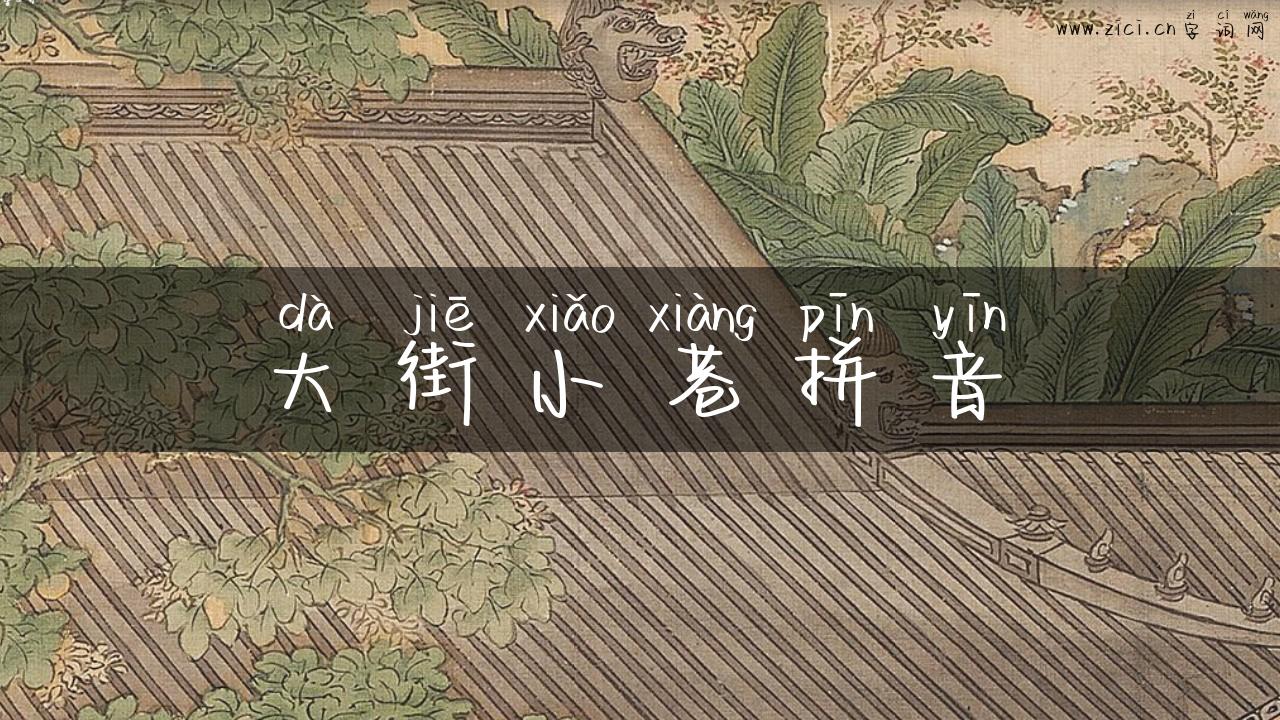 zì cí wǎng
www.zici.cn 字词网
dà jiē xiǎo xiàng pīn yīn
大街小巷拼音